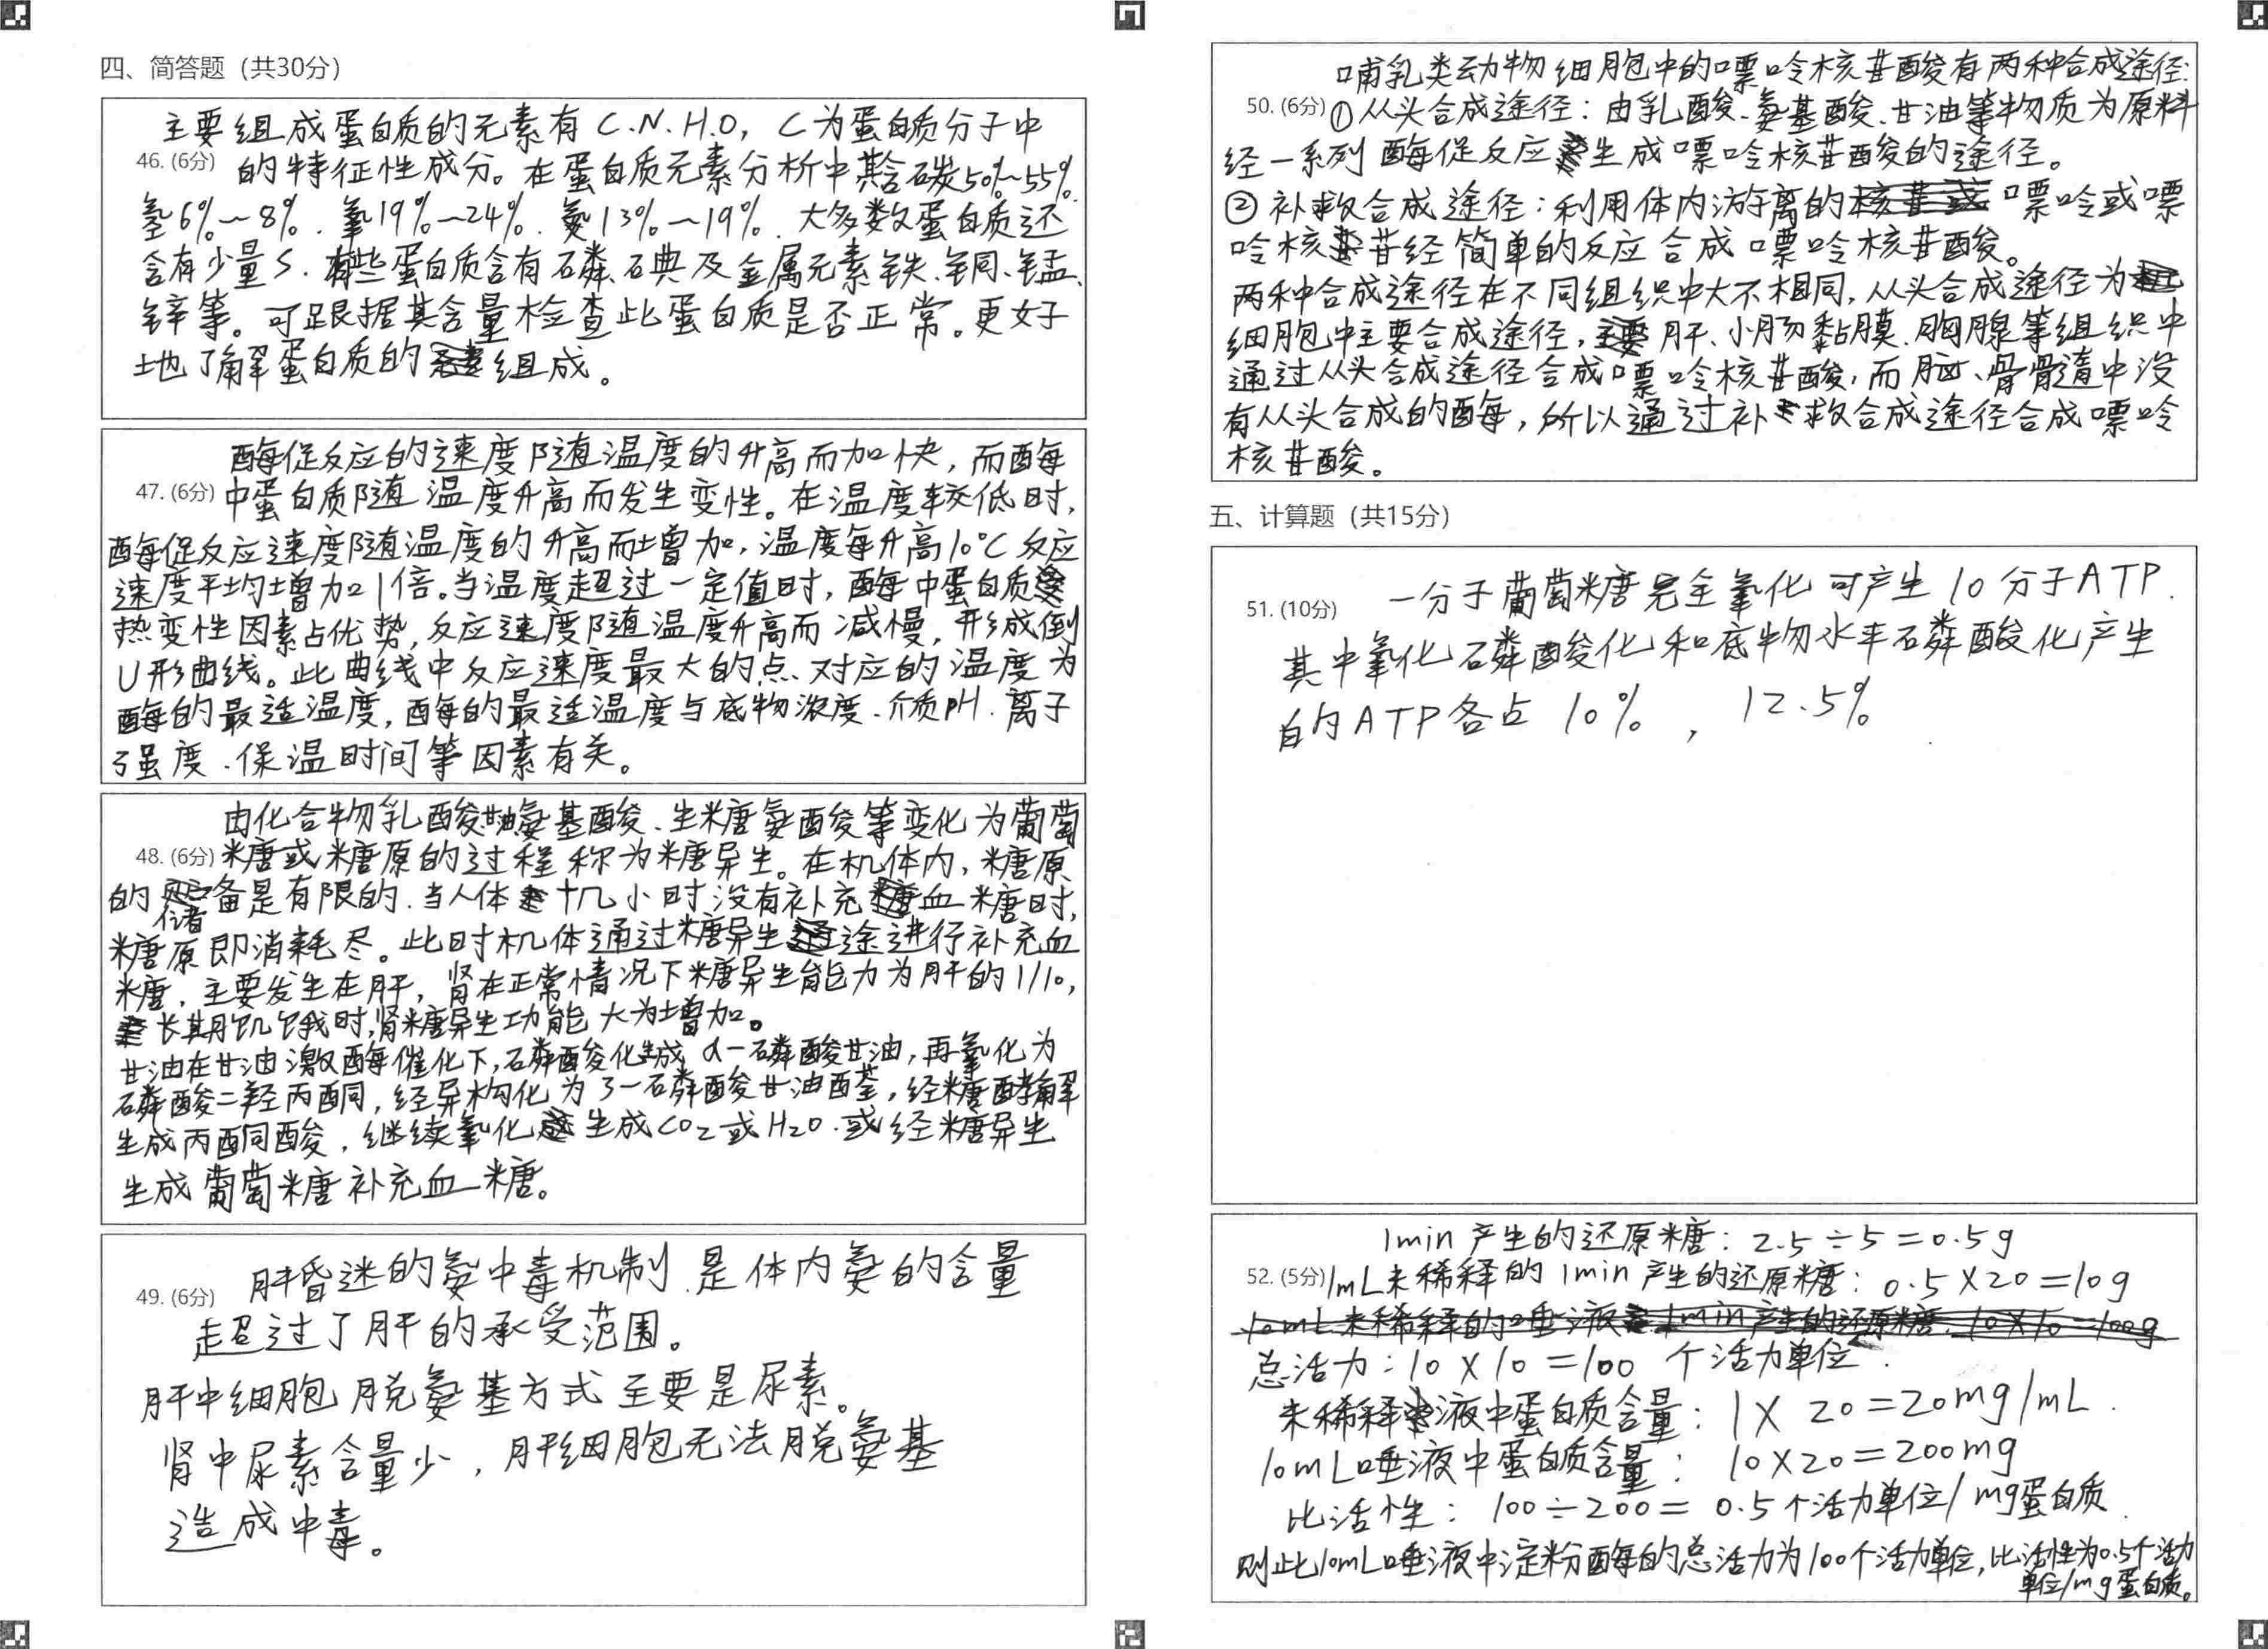 四、简答题（共30分）
主要组成蛋白质的元素有C.N.H.O，C为蛋白质分子中
46. (6分) 的特征性成分。在蛋白质元素分析中其含碳50%~55%
氢6%~8%、氧19%~24%、氮13%~19%、大多数蛋白质还
含有少量S、有些蛋白质含有磷、碘及金属元素铁、铜、锰、
锌等。可跟据其含量检查此蛋白质是否正常。更好
地了解蛋白质的组成。
酶促反应的速度随温度的升高而加快，而酶
47. (6分) 中蛋白质随温度升高而发生变性。在温度较低时，
酶促反应速度随温度的升高而增加，温度每升高10℃反应
速度平均增加1倍。当温度超过一定值时，酶中蛋白质
热变性因素占优势，反应速度随温度升高而减慢，形成倒
U形曲线。此曲线中反应速度最大的点对应的温度为
酶的最适温度，酶的最适温度与底物浓度、介质pH、离子
强度、保温时间等因素有关。
由化合物乳酸甘油氨基酸、生糖氨酸等变化为葡萄
48. (6分) 糖或糖原的过程称为糖异生。在机体内，糖原
的储备是有限的、当人体十几小时没有补充血糖时，
糖原即消耗尽。此时机体通过糖异生途进行补充血
糖，主要发生在肝，肾在正常情况下糖异生能力为肝的1/10，
长期饥饿时，肾糖异生功能大为增加。
甘油在甘油激酶催化下，磷酸化生成α-磷酸甘油，再氧化为
磷酸二羟丙酮，经异构化为3-磷酸甘油醛，经糖酵解
生成丙酮酸，继续氧化生成CO₂或H₂O.或经糖异生
生成葡萄糖补充血糖。
肝昏迷的氨中毒机制是体内氨的含量
49. (6分)
超过了肝的承受范围。
肝中细胞脱氨基方式主要是尿素。
肾中尿素含量少，肝细胞无法脱氨基
造成中毒。
哺乳类动物细胞中的嘌呤核苷酸有两种合成途径:
50. (6分) ①从头合成途径：由乳酸、氨基酸、甘油等物质为原料
经一系列酶促反应生成嘌呤核苷酸的途径。
②补救合成途径：利用体内游离的嘌呤或嘌
呤核苷经简单的反应合成嘌呤核苷酸。
两种合成途径在不同组织中大不相同，从头合成途径为
细胞中主要合成途径，肝、小肠黏膜、胸腺等组织中
通过从头合成途径合成嘌呤核苷酸，而脑、骨髓中没
有从头合成的酶，所以通过补救合成途径合成嘌呤
核苷酸。
五、计算题（共15分）
一分子葡萄糖完全氧化可产生10分子ATP.
51. (10分)
其中氧化磷酸化和底物水平磷酸化产生
的ATP各占10%，12.5%
1min产生的还原糖：2.5÷5=0.5g
52. (5分) 1mL未稀释的1min产生的还原糖：0.5×20=10g
10mL未稀释的唾液1min产生的还原糖 10×10=100g
总活力：10×10=100 个活力单位.
未稀释液中蛋白质含量：1×20=20mg/mL.
10mL唾液中蛋白质含量：10×20=200mg
比活性：100÷200=0.5个活力单位/mg蛋白质.
则此10mL唾液中淀粉酶的总活力为100个活力单位，比活性为0.5个活力
单位/mg蛋白质。